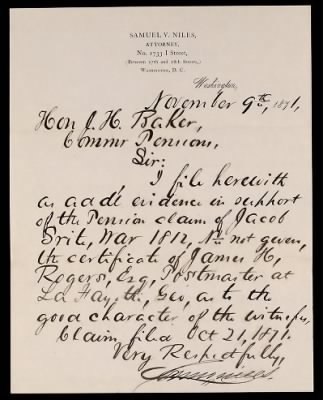 SAMUEL V. NILES,
ATTORNEY,
No. 1733 I Street,
(Between 17th and 18th Streets,)
WASHINGTON, D. C.
Washington,
November 9th, 1871.
Hon J. H. Baker,
Commr Pensions,
Sir:
I file herewith
as add'l evidence in support
of the Pension claim of Jacob
Brite, War 1812, No not given,
the certificate of James H,
Rogers, Esq, Postmaster at
La Fayette, Geo, as to the
good character of the witnesses,
Claim filed Oct 21, 1871.
Very Respectfully,